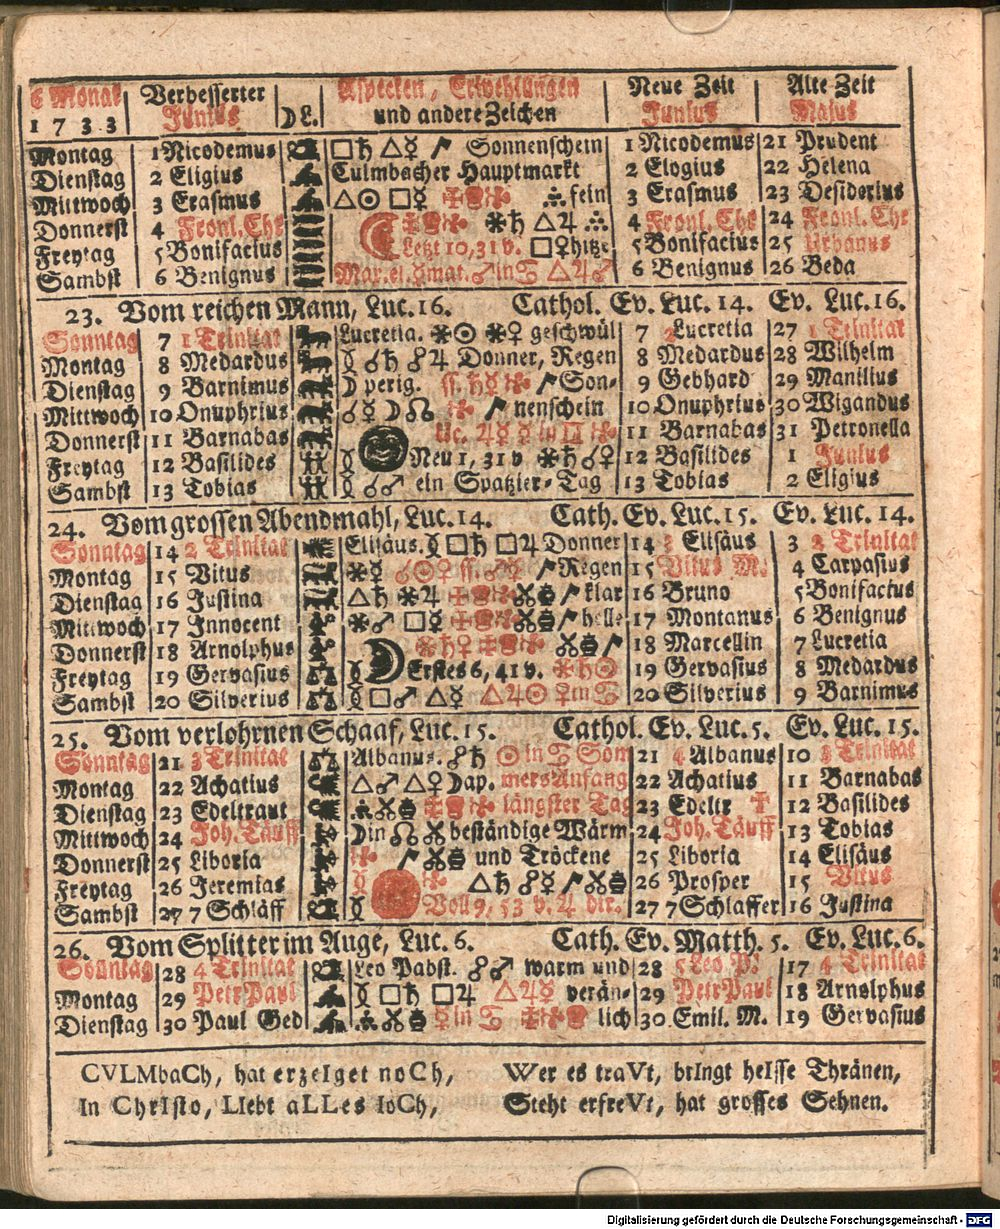 6 Monat Verbesserter Aspecten, Erwehlungen Neue Zeit Alte Zeit
1733 Junius ☽ L. und andere Zeichen Junius Majus
Montag 1 Nicodemus □♄ △☿ Sonnenschein 1 Nicodemus 21 Prudent
Dienstag 2 Eligius Culmbacher Hauptmarkt 2 Elogius 22 Helena
Mittwoch 3 Erasmus △☉ □☿ fein 3 Erasmus 23 Desiderius
Donnerst 4 Fronl. Chr ⚹♄ △♃ 4 Fronl. Chr 24 Fronl. Chr
Freytag 5 Bonifacius Letzt 10, 31 v. □♀ hitze 5 Bonifacius 25 Urbanus
Sambst 6 Benignus Mar. el. ☿ mat. ♂ in ♋ △♃♂ 6 Benignus 26 Beda
23. Vom reichen Mann, Luc. 16. Cathol. Ev. Luc. 14. Ev. Luc. 16.
Sonntag 7 1 Trinitat Lucretia. ⚹☉ ⚹♀ geschwül 7 2 Lucretia 27 1 Trinitat
Montag 8 Medardus ☌♄ ☍♃ Donner, Regen 8 Medardus 28 Wilhelm
Dienstag 9 Barnimus ☽ perig. ss. ♄☿ Son- 9 Gebhard 29 Manilius
Mittwoch 10 Onuphrius ☌☿ ☽☊ nenschein 10 Onuphrius 30 Wigandus
Donnerst 11 Barnabas Uc. ♃☿ ☿ in ♊ 11 Barnabas 31 Petronella
Freytag 12 Basilides Neu 1, 31 v ⚹♄ ☌♀ 12 Basilides 1 Junius
Sambst 13 Tobias ☌♂ ein Spatzier-Tag 13 Tobias 2 Eligius
24. Vom grossen Abendmahl, Luc. 14. Cath. Ev. Luc. 15. Ev. Luc. 14.
Sonntag 14 2 Trinitat Elisäus. □♄ □♃ Donner 14 3 Elisäus 3 2 Trinitat
Montag 15 Vitus ⚹☿ ☌☉♀ ss. ♂☿ Regen 15 Vitus M. 4 Carpasius
Dienstag 16 Justina △♄ ⚹♃ klar 16 Bruno 5 Bonifacius
Mittwoch 17 Innocent ⚹♂ □☿ helle 17 Montanus 6 Benignus
Donnerst 18 Arnolphus ⚹♄♀ 18 Marcellin 7 Lucretia
Freytag 19 Gervasius Erstes 6, 41 v. ⚹♄☉ 19 Gervasius 8 Medardus
Sambst 20 Silverius □♂ △☿ △♃☉ ♀ in ♋ 20 Silverius 9 Barnimus
25. Vom verlohrnen Schaaf, Luc. 15. Cathol. Ev. Luc. 5. Ev. Luc. 15.
Sonntag 21 3 Trinitat Albanus. ☍♄ ☉ in ♋ Som 21 4 Albanus 10 3 Trinitat
Montag 22 Achatius △♂ △♀ ☽ ap. mersAnfang 22 Achatius 11 Barnabas
Dienstag 23 Edeltraut längster Tag 23 Edeltr 12 Basilides
Mittwoch 24 Joh. Täuff ☽ in ☊ beständige Wärm 24 Joh. Täuff 13 Tobias
Donnerst 25 Liboria und Tröckene 25 Liboria 14 Elisäus
Freytag 26 Jeremias △♄ ☍☿ 26 Prosper 15 Vitus
Sambst 27 7 Schläff Voll 9, 53 v. ♃ dir. 27 7 Schlaffer 16 Justina
26. Vom Splitter im Auge, Luc. 6. Cath. Ev. Matth. 5. Ev. Luc. 6.
Sonntag 28 4 Trinitat Leo Pabst. ☍♂ warm und 28 5 Leo P. 17 4 Trinitat
Montag 29 Petr Paul □♄ □♃ △♃☿ verän- 29 Petr Paul 18 Arnolphus
Dienstag 30 Paul Ged ☿ in ♋ lich 30 Emil. M. 19 Gervasius
CVLMbaCh, hat erzeIget noCh, Wer es traVt, brIngt heIsse Thränen,
In ChrIsto, LIebt aLLes IoCh, Steht erfreVt, hat grosses Sehnen.
Digitalisierung gefördert durch die Deutsche Forschungsgemeinschaft - DFG